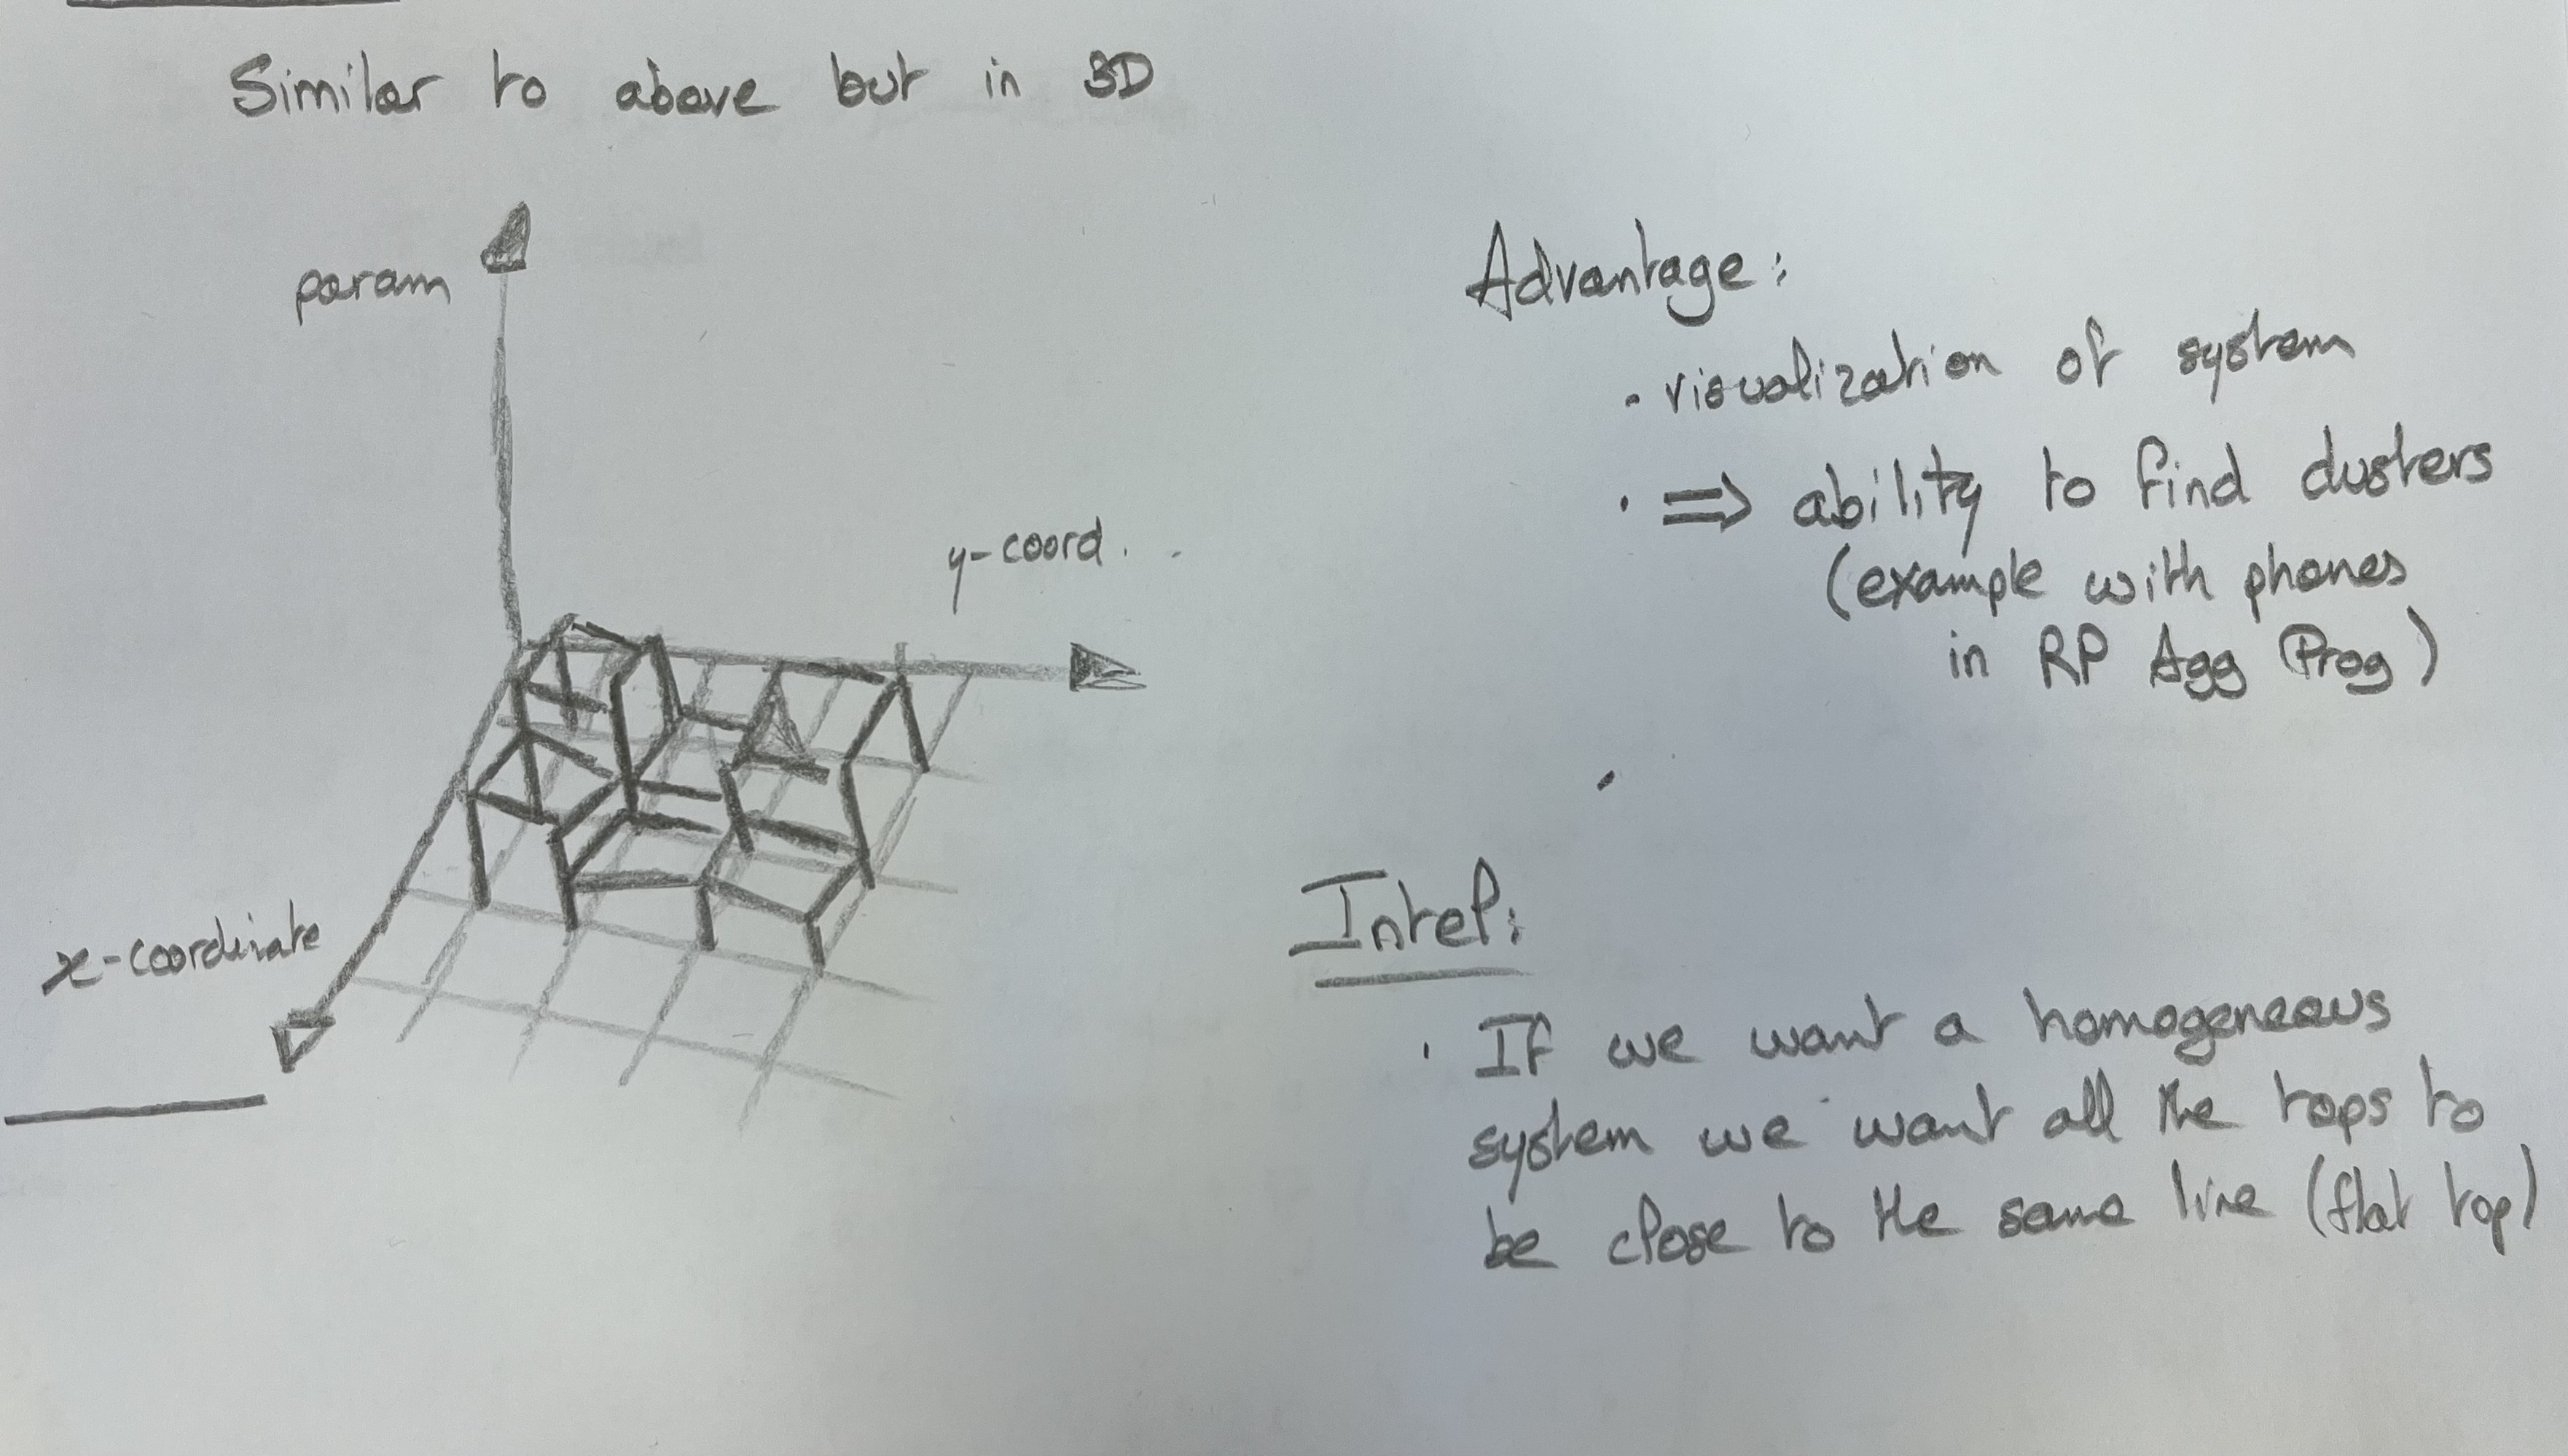 Similar to above but in 3D
param
y-coord.
x-coordinate
Advantage:
· visualization of system
· ⇒ ability to find clusters
(example with phones
in RP Agg Prog)
Interp:
· If we want a homogeneous
system we want all the tops to
be close to the same line (flat top)